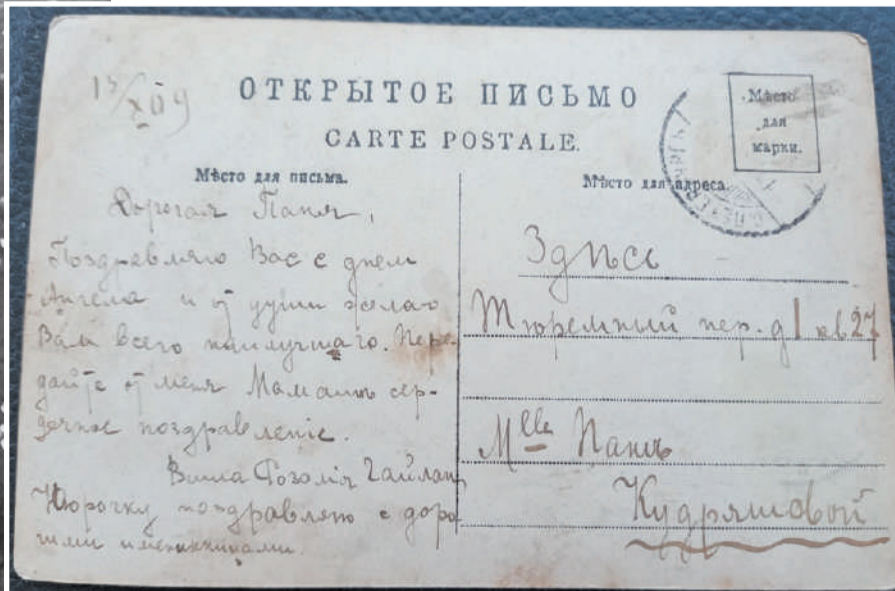 13/X 09
ОТКРЫТОЕ ПИСЬМО
CARTE POSTALE.
Мѣсто
для
марки.
Мѣсто для письма.
Дорогая Паня,
Поздравляю Васъ с днем
Ангела и от души желаю
Вам всего наилучшаго. Пере-
дайте от меня Мамашѣ сер-
дечное поздравленіе.
Ваша Гайлан
Нюрочку поздравляю с доро
гими именинницами.
Мѣсто для адреса.
Здѣсь
Тюремный пер. д 1 кв 27
Mlle Панѣ
Кудряшовой